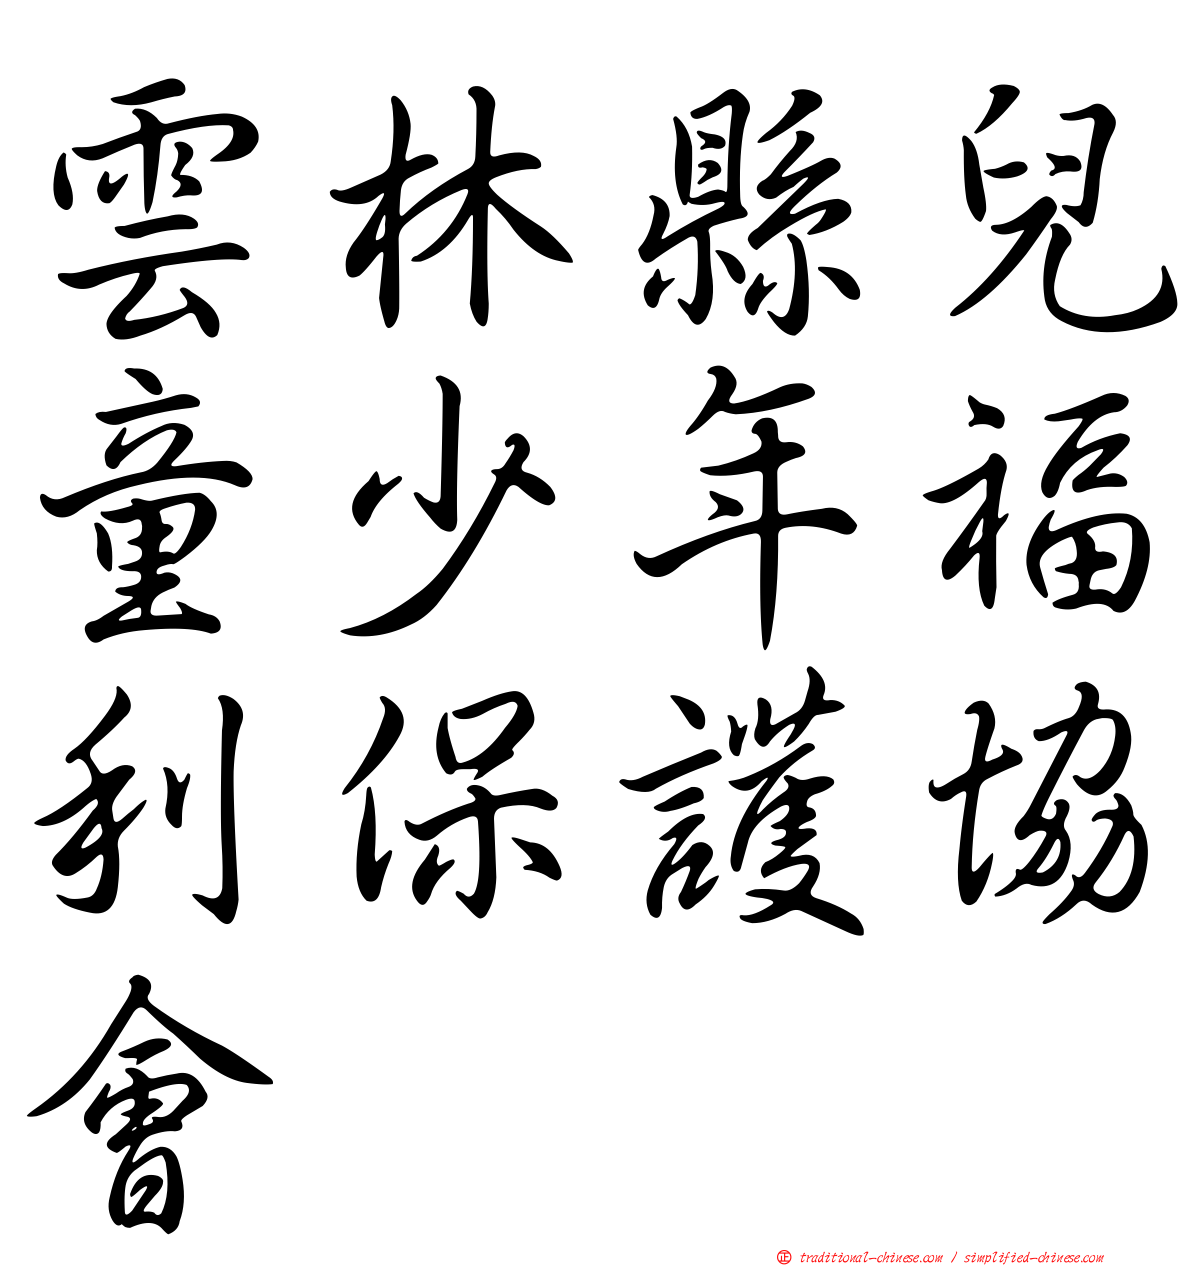 雲林縣兒
童少年福
利保護協
會
正 traditional-chinese.com / simplified-chinese.com